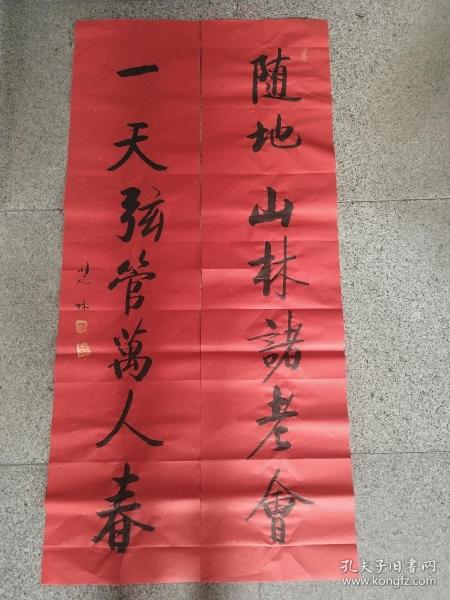 随地山林諸老會
一天弦管萬人春
林
孔夫子旧书网
www.kongfz.com